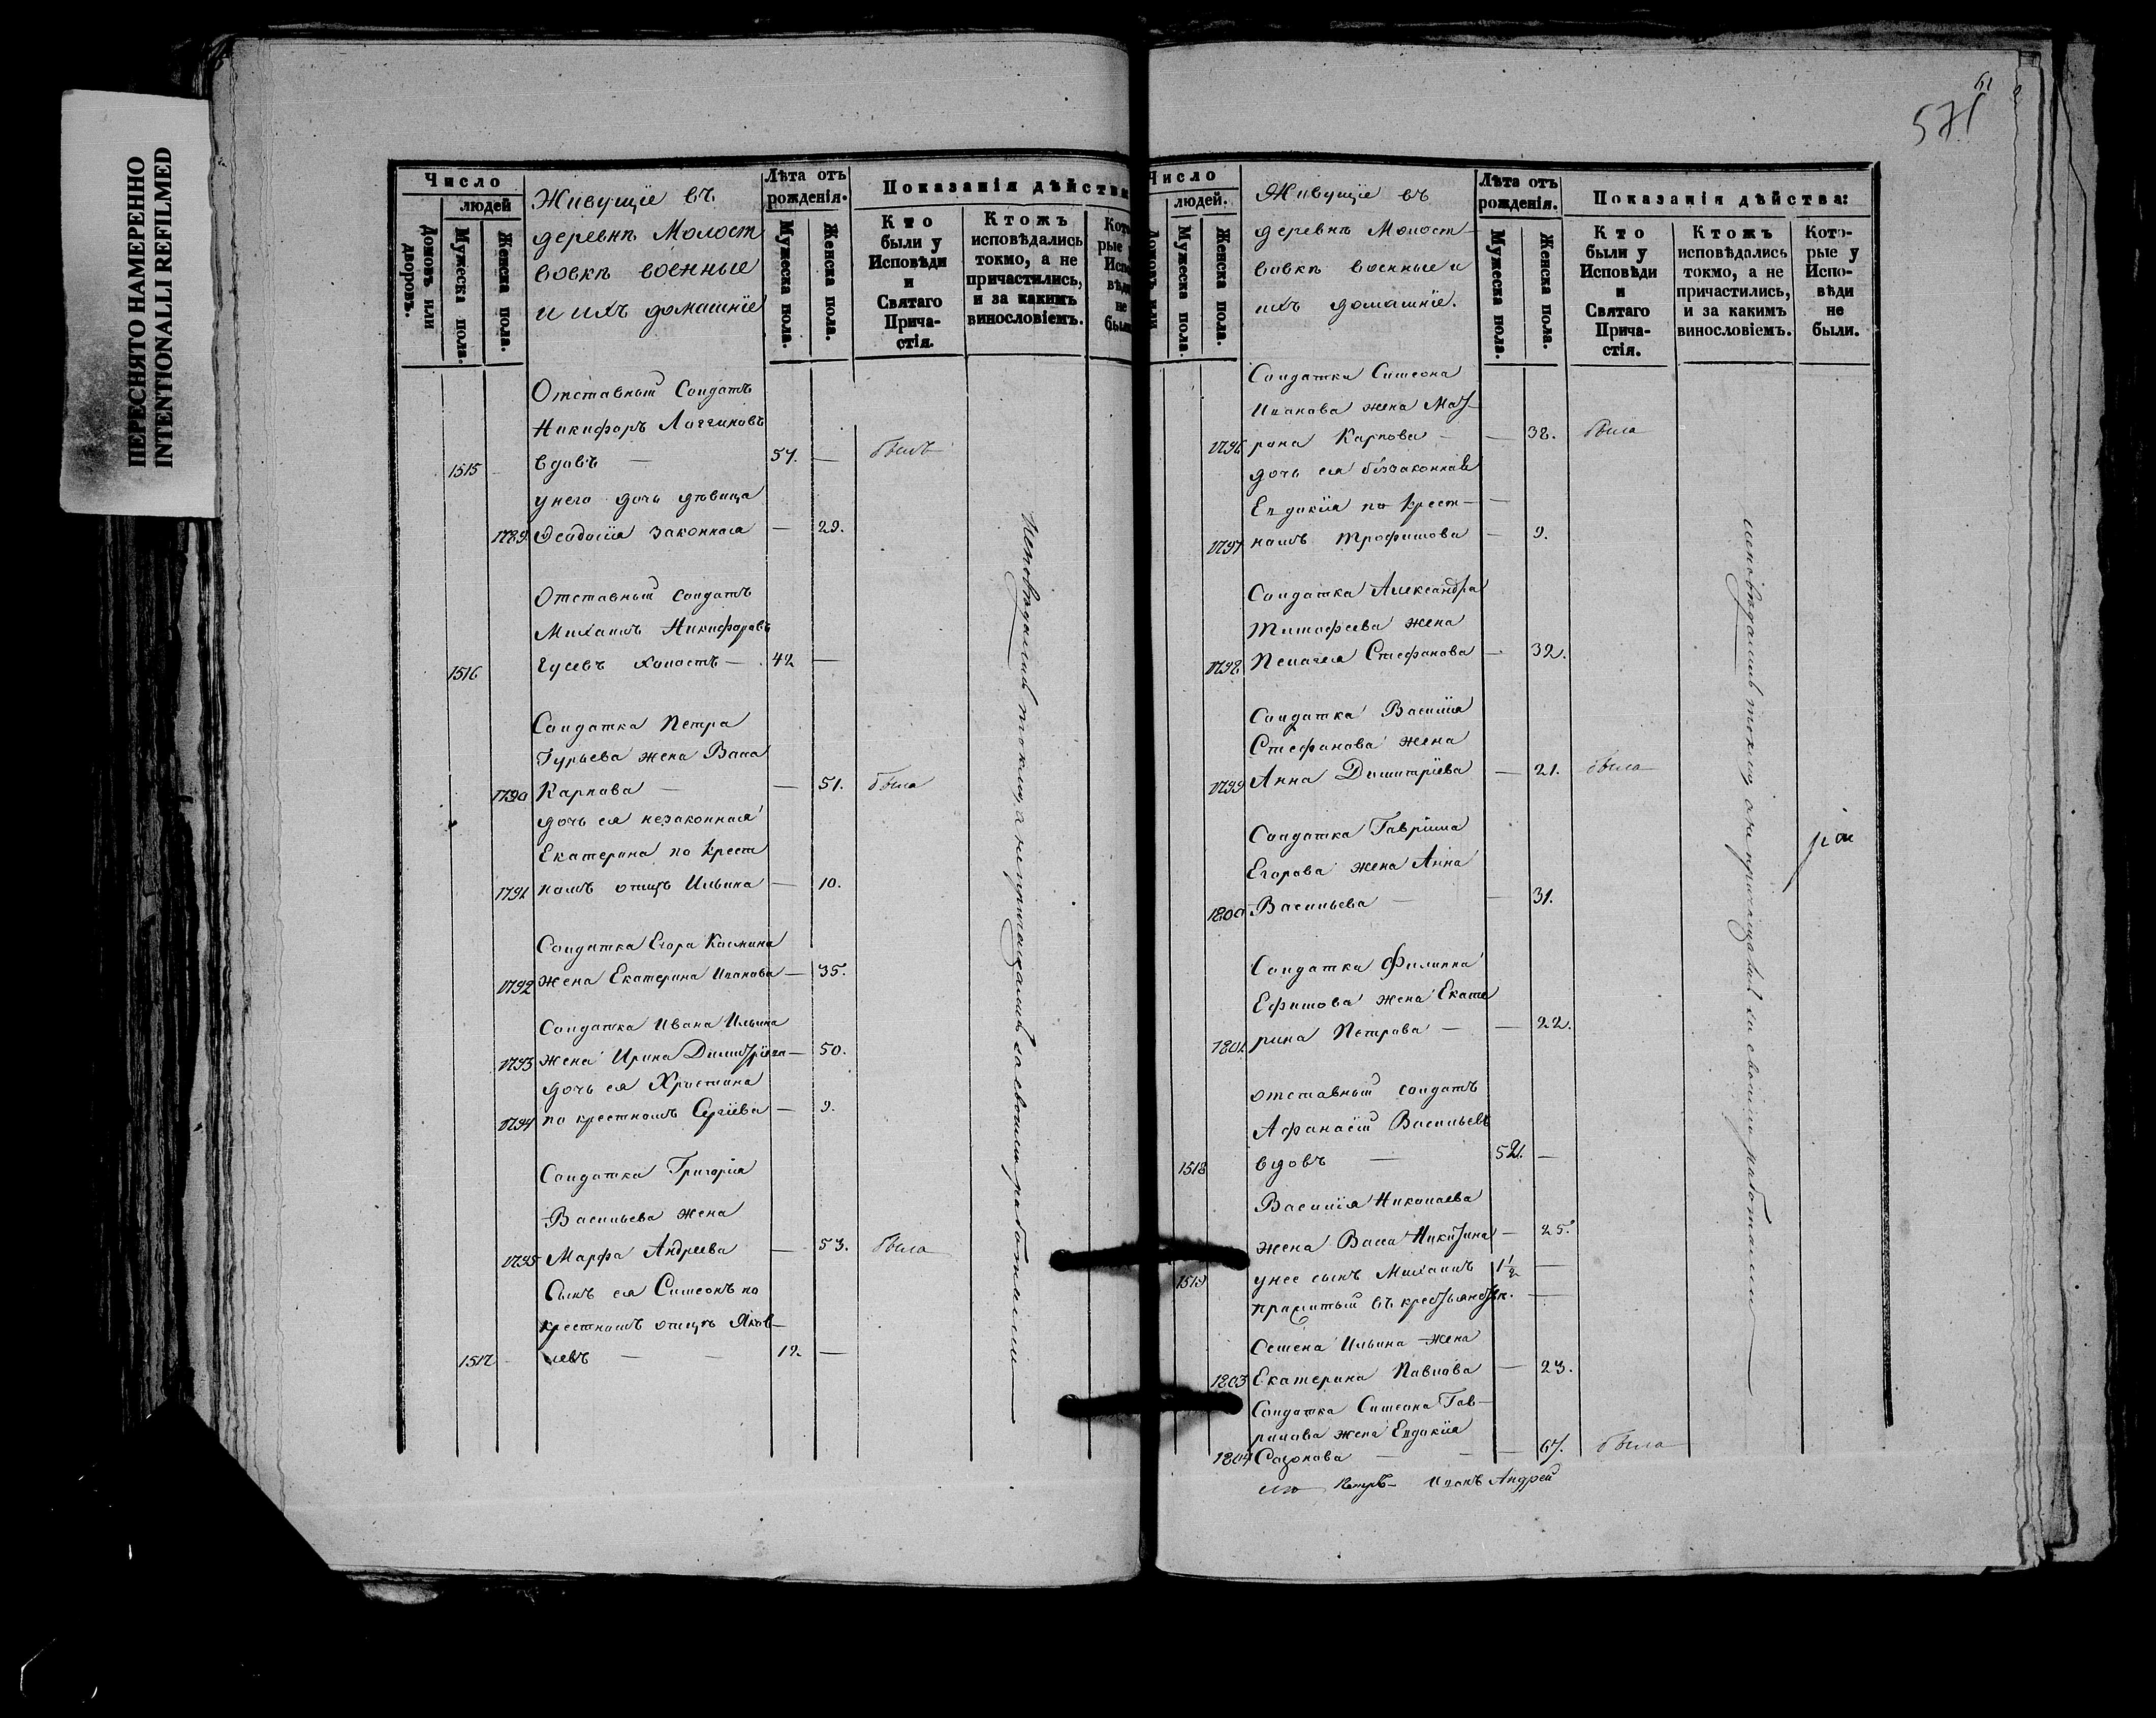 ПЕРЕСНЯТО НАМЕРЕННО
INTENTIONALLI REFILMED
Число
людей
Домовъ или дворовъ.
Мужеска пола.
Женска пола.
Живущіе въ
деревнѣ Молост
вовкѣ военные
и ихъ домашніе
Лѣта отъ
рожденія.
Мужеска пола.
Женска пола.
Показанія дѣйства
Кто
были у
Исповѣди
и
Святаго
Прича-
стія.
Ктожъ
исповѣдались
токмо, а не
причастились,
и за какимъ
винословіемъ.
Отставный Солдатъ
Никифоръ Логгиновъ
1515 вдовъ — 57. — былъ
у него дочь дѣвица
1789 Ѳеодосія законная — 29.
Отставный солдатъ
Михаилъ Никифоровъ
1516 Гусевъ холостъ — 42 —
Солдатка Петра
Гурьева жена Васса
1790 Карпова — — 51. была
дочь ея незаконная
Екатерина по Крест
1791 номъ отцѣ Ильина — 10.
Солдатка Егора Космина
1792 жена Екатерина Иванова — 35.
Солдатка Ивана Ильина
1793 жена Ирина Димитріева — 50.
дочь ея Христина
1794 по крестномъ Сергіева — 9.
Солдатка Григорія
Васильева жена
1795 Марфа Андреева — 53. была
Сынъ ея Симеонъ по
крестномъ отцѣ Яков-
1517 левъ — — 12 —
исповѣдались токмо, а не причащались за своими работами
571
61
Число
людей.
Мужеска пола.
Женска пола.
Живущіе въ
деревнѣ Молост-
вовкѣ военные и
ихъ домашніе.
Лѣта отъ
рожденія.
Мужеска пола.
Женска пола.
Показанія дѣйства:
Кто
были у
Исповѣди
и
Святаго
Прича-
стія.
Ктожъ
исповѣдались
токмо, а не
причастились,
и за каким
винословіемъ.
Кото-
рые у
Испо-
вѣди
не
были.
Солдатка Симеона
Иванова жена Мат-
1796 рона Карпова — — 38. была
дочь ея беззаконная
Евдокія по Крест- —
1797 номъ Трофимова — 9.
Солдатка Александра
Тимофеева жена
1798 Пелагея Стефанова — 32.
Солдатка Василія
Стефанова жена
1799 Анна Димитріева — 21. была
Солдатка Гавріила
Егорова жена Анна
1800 Васильева — — 31.
Солдатка Филиппа
Ефимова жена Екате
1801 рина Петрова — — 22.
отставный солдатъ
Афанасій Васильевъ
1518 вдовъ — 52. —
Василія Николаева
жена Васса Никитина — 25.
1519 у нее сынъ Михаилъ 1½ —
прижитый въ крестьянствѣ. —
Семена Ильина жена
1803 Екатерина Павлова — 23.
Солдатка Симеона Гав-
рилова жена Евдокія
1804 Сафонова — — 67. была
исповѣдались токмо, а не причащались за своими работами
Петръ — Иванъ Андрей